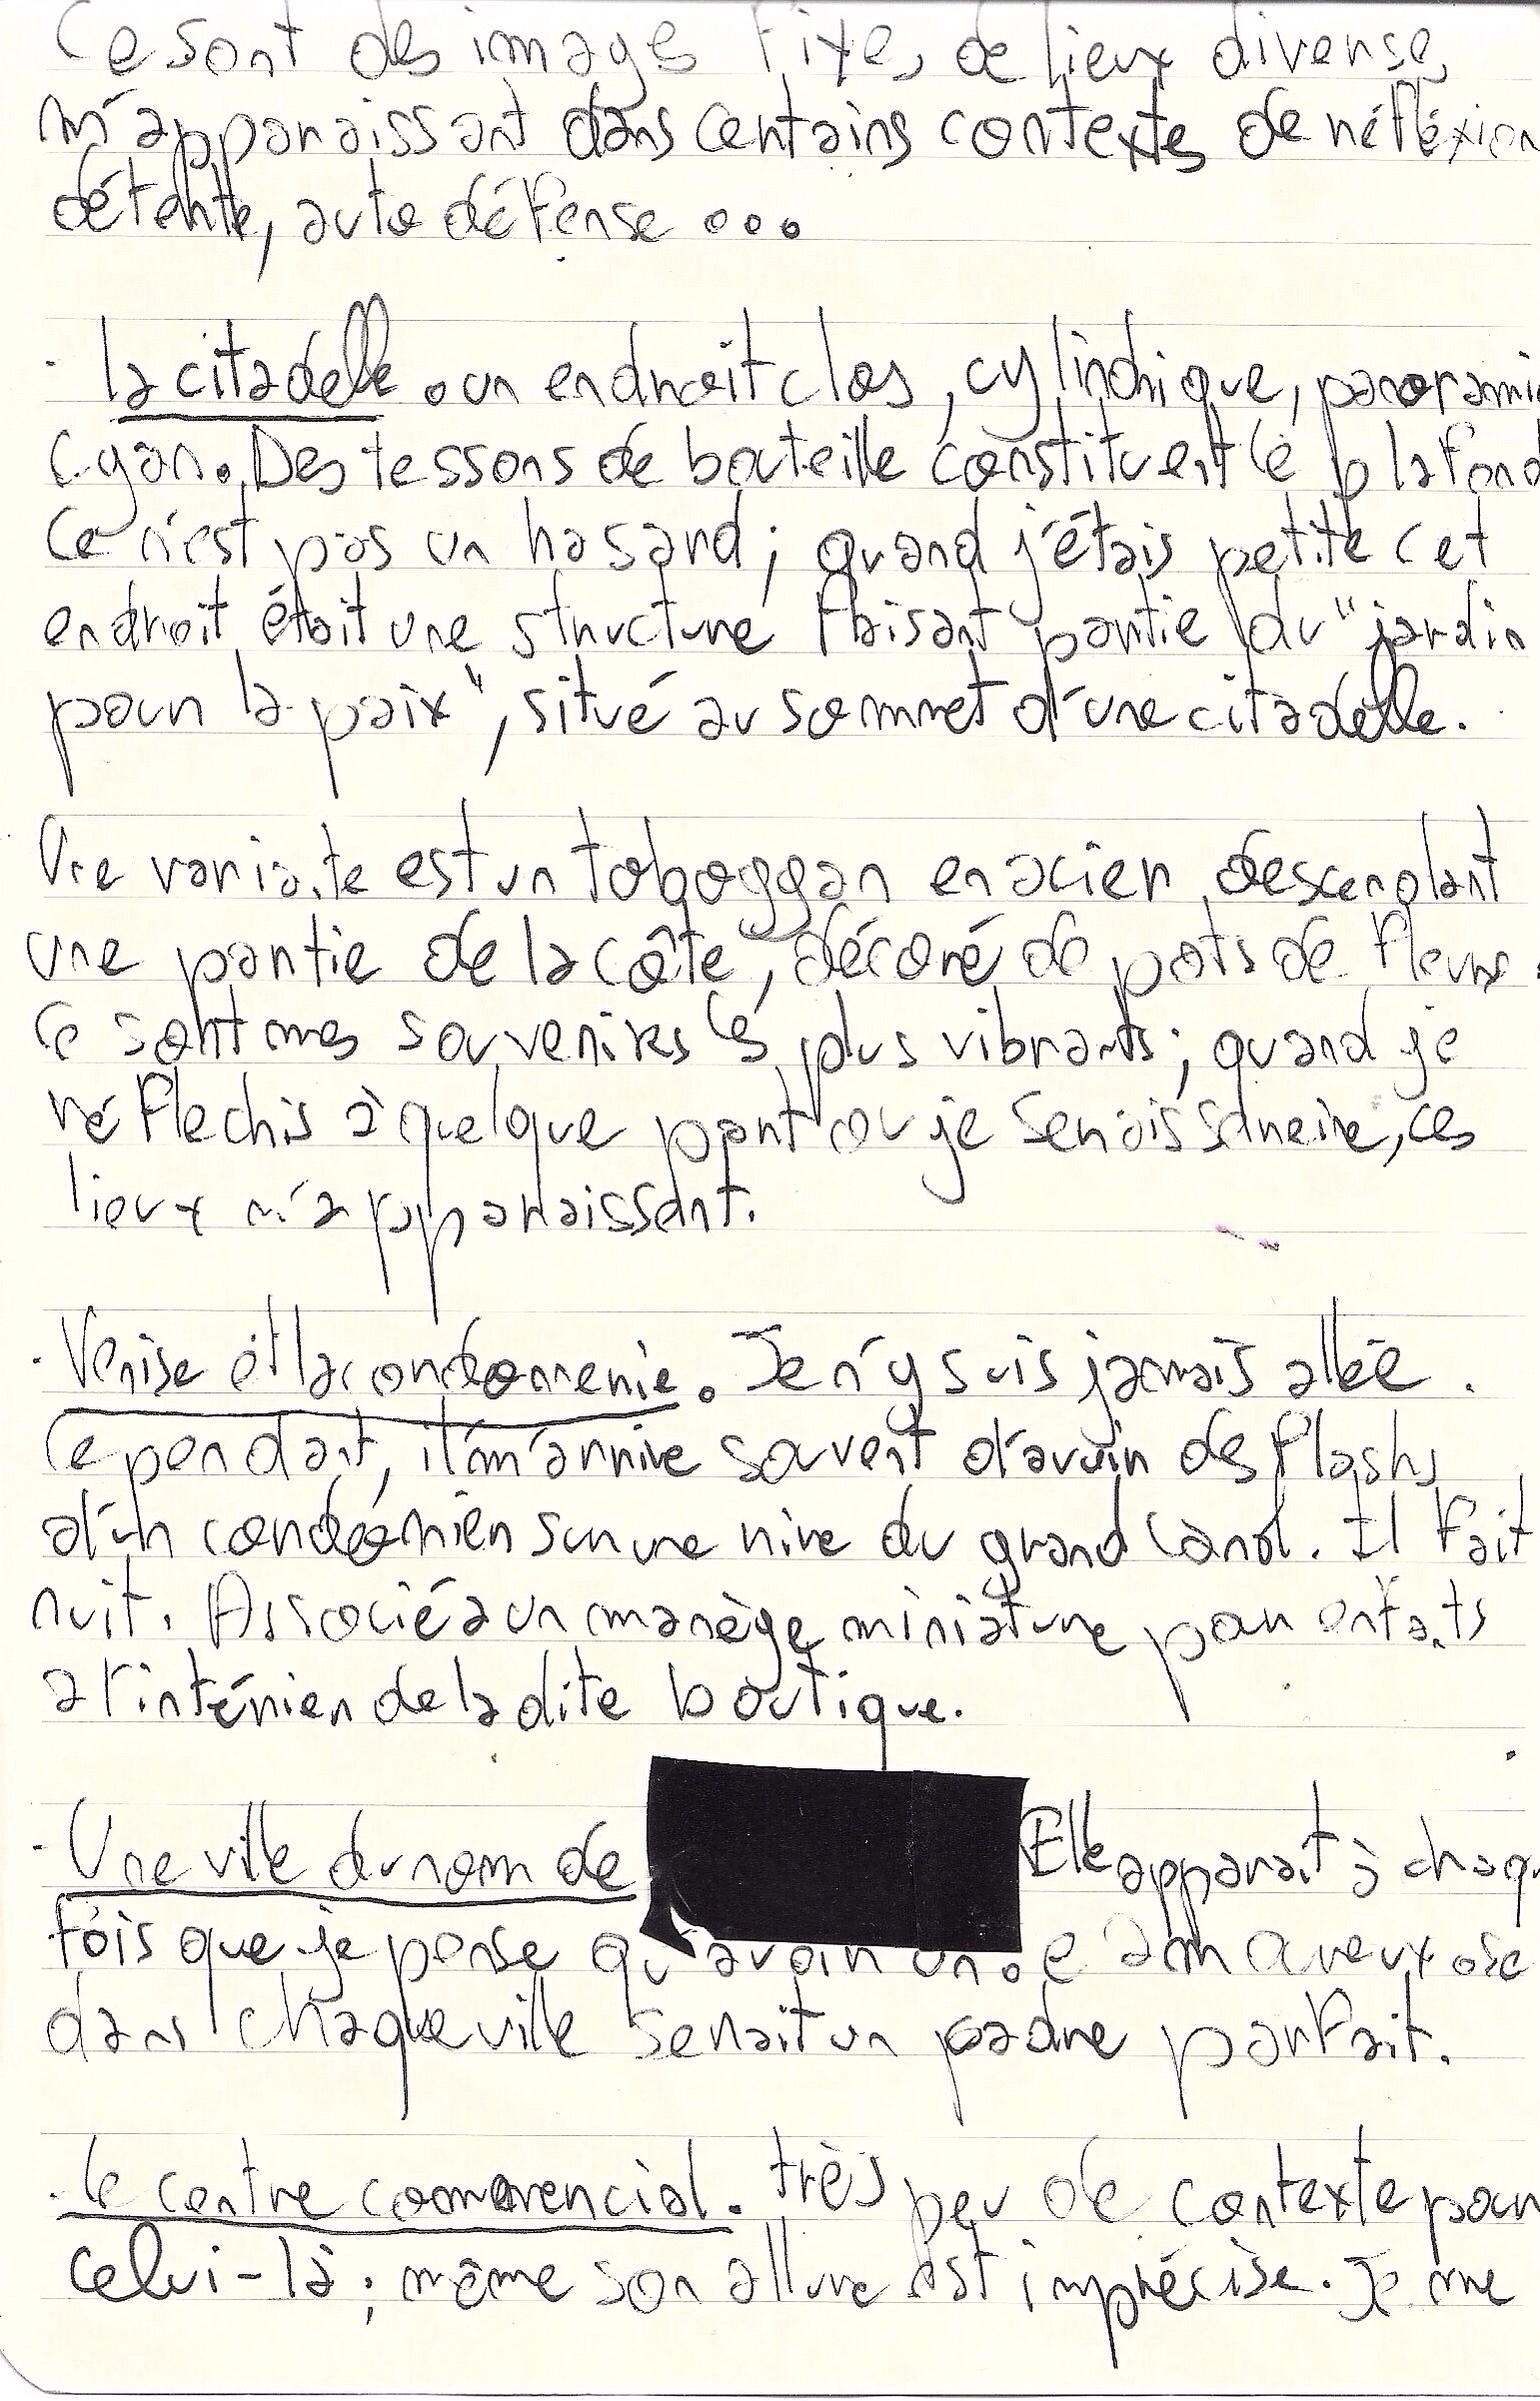 Ce sont des images fixes de lieux divers,
m'apparaissant dans certains contextes de réfléxion
détente, auto défense ...
· la citadelle. un endroit clos, cylindrique, panorami
cyan. Des tessons de bouteille constituent le plafond
Ce n'est pas un hasard; quand j'étais petite cet
endroit était une structure faisant partie du "jardin
pour la paix", situé au sommet d'une citadelle.
Une variante est un toboggan en acier descendant
une partie de la côte, décoré de pots de fleurs.
Ce sont mes souvenirs les plus vibrants; quand je
réflechis à quelque part ou je serais sereine, ces
lieux m'apparaissent.
· Venise et la cordonnerie. Je n'y suis jamais allée.
Cependant, il m'arrive souvent d'avoir des flashs
d'un cordonnier sur une rive du grand canal. Il fait
nuit. Associé a un manège miniature pour enfants
a l'intérieur de la dite boutique.
· Une ville du nom de Elle apparait à chaqu
fois que je pense qu'avoir un.e amoureux.se
dans chaque ville serait un cadre parfait.
· Le centre commercial. très peu de contexte pour
celui-là; même son allure est imprécise. Je me